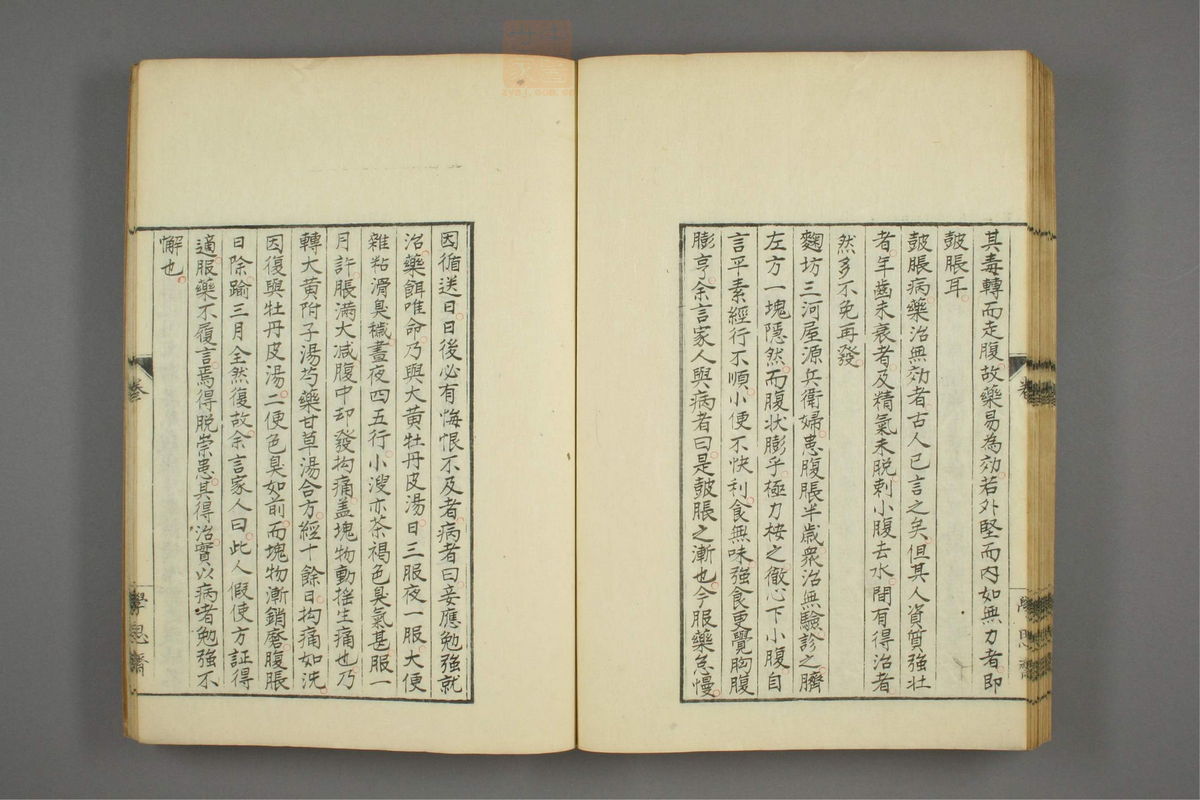 其毒轉而走腹故藥易為効若外堅而内如無力者即
皷脹耳
皷脹病藥治無効者古人已言之矣但其人資質強壮
者年齒未衰者及精氣未脱刺小腹去水間有得治者
然多不免再發
麴坊三河屋源兵衛婦患腹脹半歳衆治無驗診之臍
左方一塊隱然而腹状膨乎極力桉之徹心下小腹自
言平素經行不順小便不快利食無味強食更覺胸腹
膨亨余言家人與病者曰是皷脹之漸也今服藥怠慢
因循送日日後必有悔恨不及者病者曰妾應勉強就
治藥餌唯命乃與大黄牡丹皮湯日三服夜一服大便
雜粘滑臭穢晝夜四五行小溲亦茶褐色臭氣甚服一
月許脹滿大減腹中却發拘痛盖塊物動揺生痛也乃
轉大黄附子湯芍藥甘草湯合方經十餘日拘痛如洗
因復與牡丹皮湯二便色臭如前而塊物漸銷磨腹脹
日除踰三月全然復故余言家人曰此人假使方証得
適服藥不履言焉得脱崇患其得治實以病者勉強不
懈也
學思齋